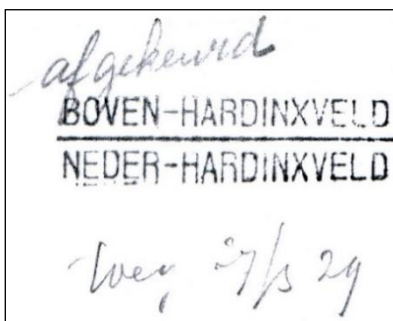 afgekeurd
BOVEN-HARDINXVELD
NEDER-HARDINXVELD
27/3 29